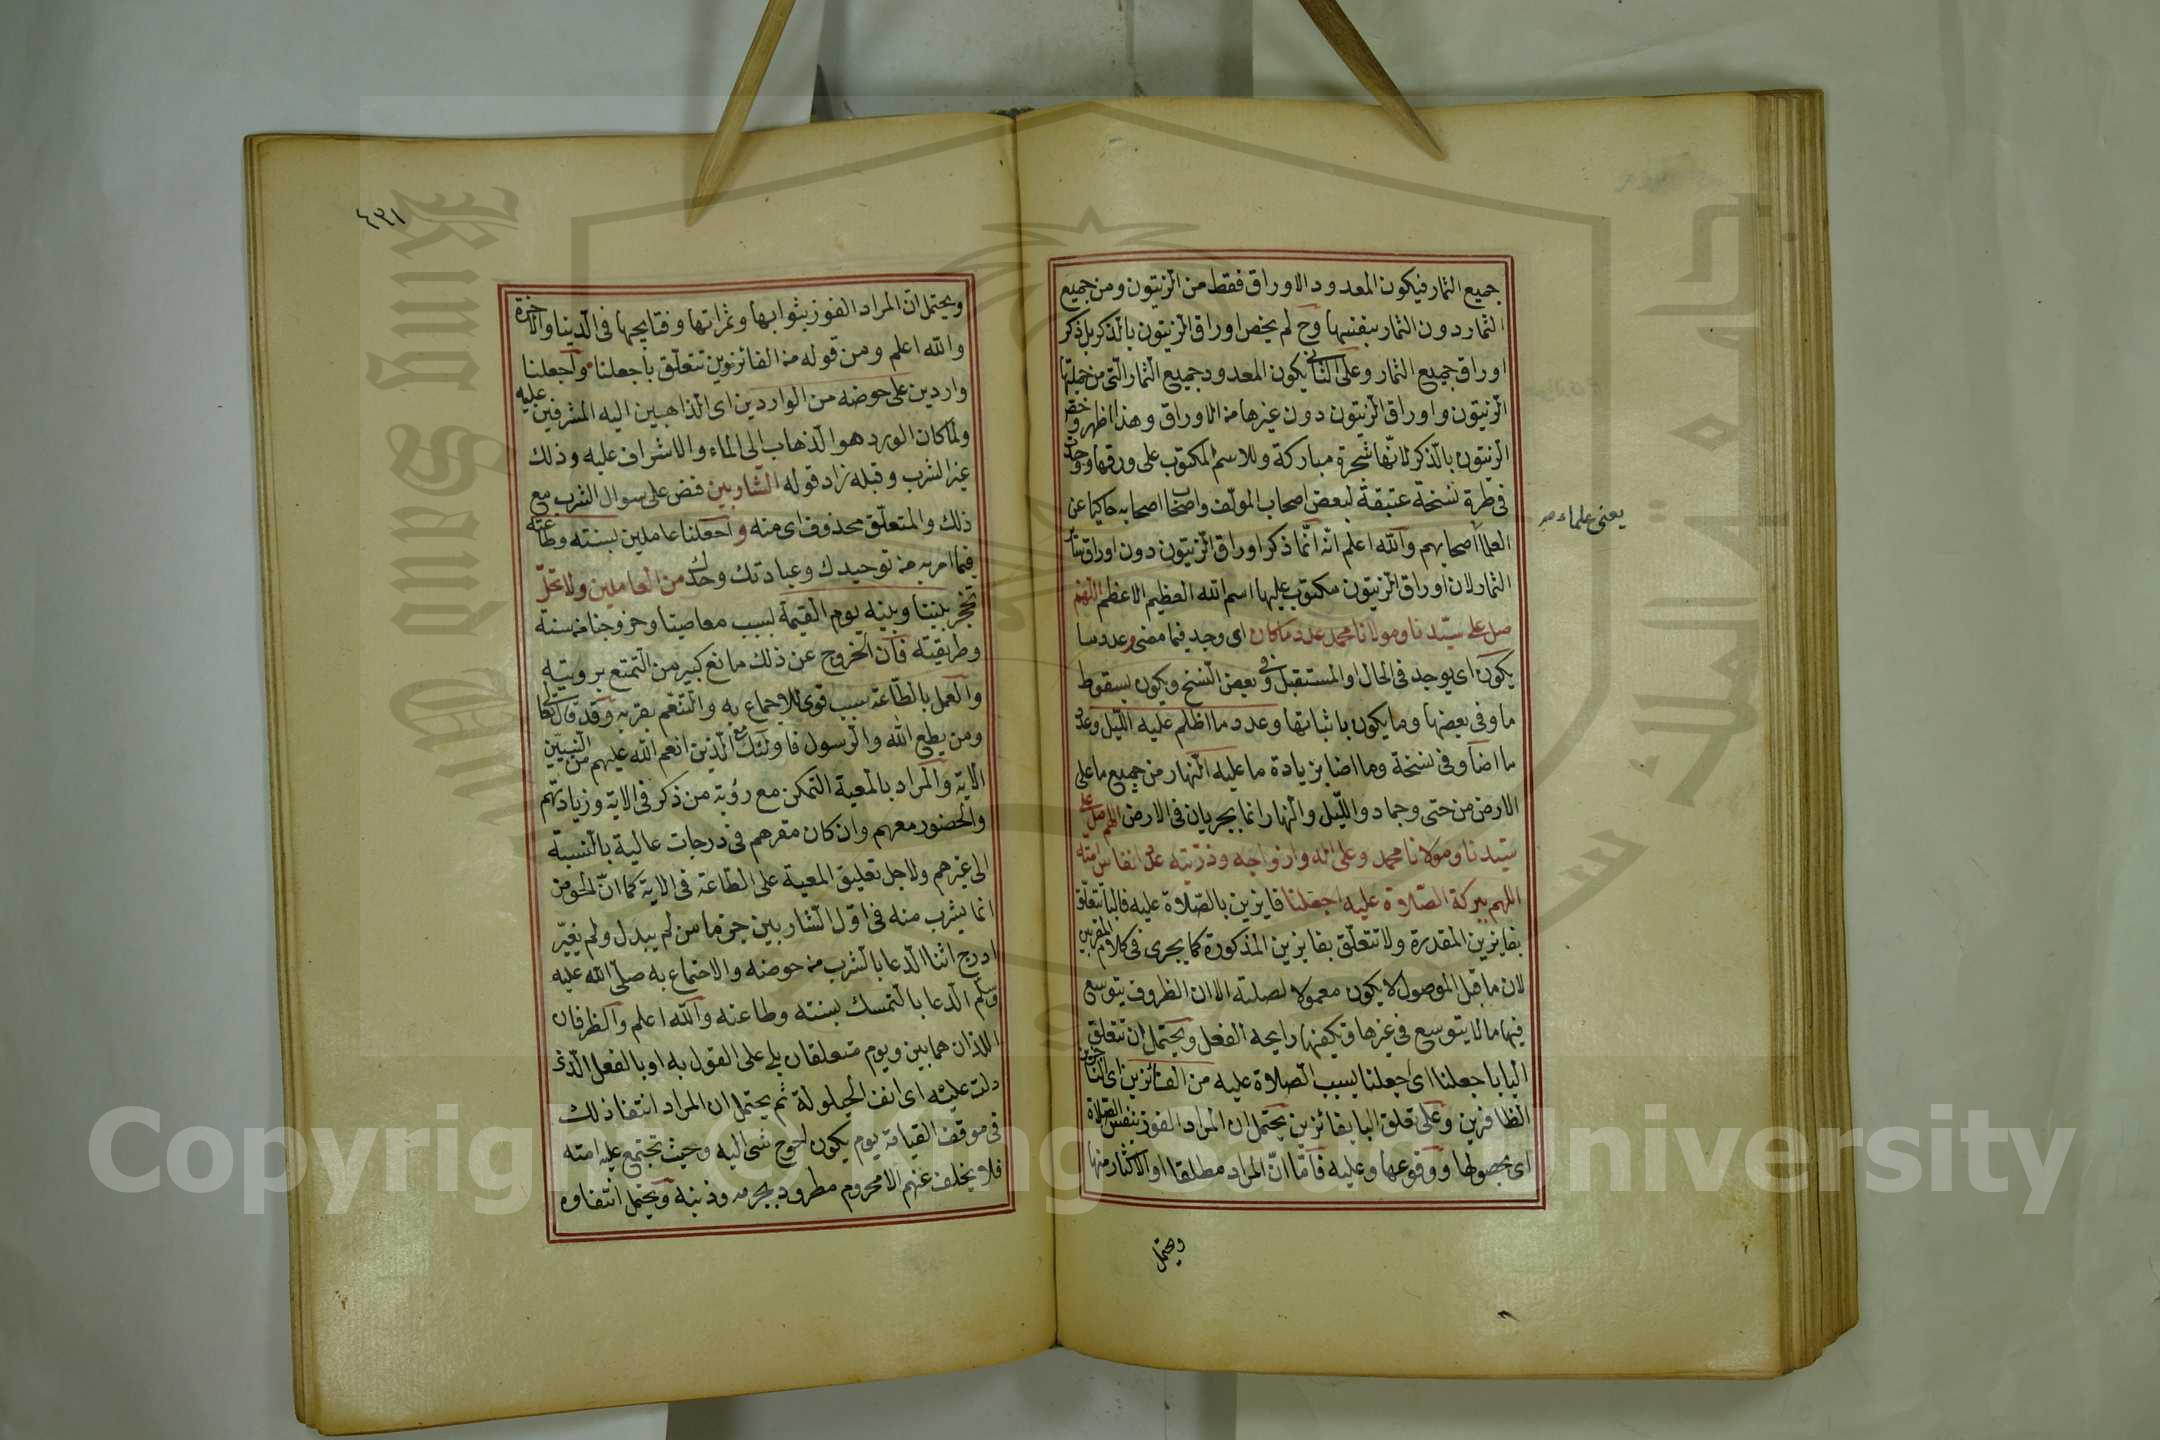 جميع الثمار فيكون المعدود الاوراق فقط من الزيتون ومن جميع
الثمار دون الثمار بنفسها وح لم يخص اوراق الزيتون بالذكر بل ذكر
اوراق جميع الثمار وعلى الثانى يكون المعدود جميع الثمار التى من جملتها
الزيتون واوراق الزيتون دون غيرها من الاوراق وهذا اظهر وخص
الزيتون بالذكر لانها شجرة مباركة وللاسم المكتوب على ورقها ووجدت
فى طرة نسخة عتيقة لبعض اصحاب المولف واصحاب اصحابه حاكيا عن
العلماء اصحابهم والله اعلم انه انما ذكر اوراق الزيتون دون اوراق سائر
الثمار لان اوراق الزيتون مكتوب عليها اسم الله العظيم الاعظم اللهم
صل على سيدنا ومولانا محمد عدد ما كان اى وجد فيما مضى وعدد ما
يكون اى يوجد فى الحال او المستقبل وفى بعض النسخ ويكون بسقوط
ما وفى بعضها وما يكون باثباتها وعدد ما اظلم عليه الليل وعدد
ما اضا وفى نسخة وما اضا بزيادة ما عليه النهار من جميع ما على
الارض من حتى وجماد والليل والنهار انما يجريان فى الارض اللهم صل على
سيدنا ومولانا محمد وعلى اله وازواجه وذريته عدد انفاس امته
اللهم ببركة الصلاة عليه اجعلنا فايزين بالصلاة عليه فالبا تتعلق
بفايزين المقدرة ولا تتعلق بفايزين المذكورة كما يجرى فى كلام المقربين
لان ما قبل الموصول لا يكون معمولا لصلته الا ان الظروف يتوسع
فيها ما لا يتوسع فى غيرها وتكفيها رايحه الفعل ويحتمل ان تتعلق
البا باجعلنا اى اجعلنا بسبب الصلاة عليه من الفائزين اى الناجين
الظافرين وعلى تعلق البا بفائزين يحتمل ان المراد الفوز بنفس الصلاة
اى بحصولها ووقوعها وعليه فاما ان المراد مطلقا او الاكثار منها
ويحتمل
يعنى علماء
٤٣١
ويحتمل ان المراد الفوز بثوابها وثمراتها وفتايحها فى الدنيا والاخرة
والله اعلم ومن قوله من الفائزين تتعلق باجعلنا واجعلنا
واردين على حوضه من الواردين اى الذاهبين اليه المشرفين عليه
ولما كان الورد هو الذهاب الى الماء والاشراف عليه وذلك
غير الشرب وقبله زاد قوله الشاربين فنص على سوال الشرب مع
ذلك والمتعلق محذوف اى منه واجعلنا عاملين بسنته وطاعته
فيما امر به من توحيدك وعبادتك وحدك من العاملين ولا تحل
تحجر بيننا وبينه يوم القيمة بسبب معاصينا وخروجنا من سنته
وطريقته فان الخروج عن ذلك مانع كبير من التمتع برويته
والعمل بالطاعة سبب قوى للاجماع به والتنعم بقربه وقد قال تعالى
ومن يطع الله والرسول فاولئك مع الذين انعم الله عليهم من النبيين
الاية والمراد بالمعية التمكن مع رؤية من ذكر فى الاية وزيادتهم
والحضور معهم وان كان مقرهم فى درجات عالية بالنسبة
الى غيرهم ولاجل تعليق المعية على الطاعة فى الاية كما ان الحوض
انما يشرب منه فى اول الشاربين من لم يبدل ولم يغير
ادرج اثنا الدعا بالشرب من حوضه والاجتماع به صلى الله عليه
وسلم الدعا بالتمسك بسنته وطاعته والله اعلم والظرفان
اللذان هما بين ويوم متعلقان بلا على القول به او بالفعل الذى
دلت عليه اى انف الحيلولة ثم يحتمل ان المراد انتفا ذلك
فى موقف القيامة يوم يكون احوج شى اليه وحيث تجتمع عليه امته
فلا يخلف عنهم الا محروم مطرود بجرمه وذنبه ويحتمل انتفاوه